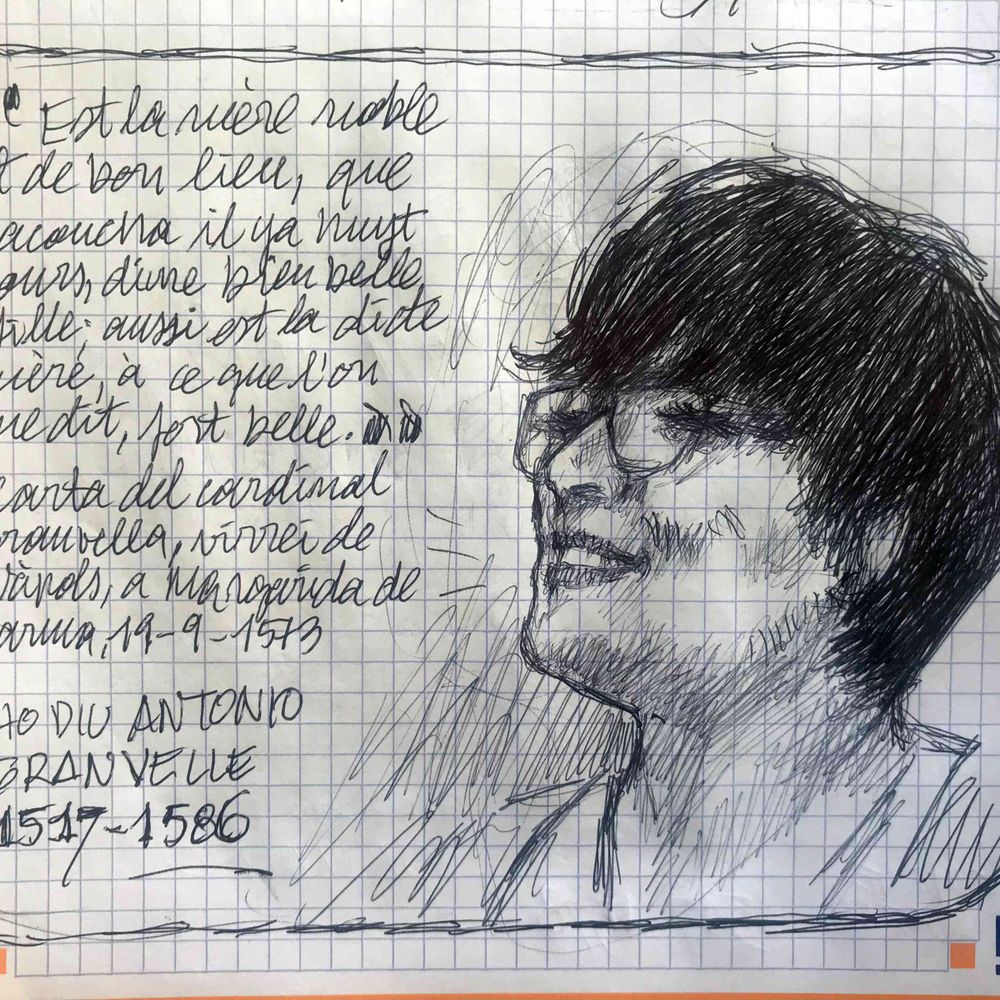 " Est la mère noble
t de bon lieu, que
acoucha il ya huyt
ours, d'une bien belle
fille; aussi est la dicte
mère, à ce que l'on
me dit, fort belle. »
carta del cardinal
ranvella, virrei de
Nàpols, a Margarida de
arma, 19-9-1573
HO DIU ANTONIO
GRANVELLE
1517-1586